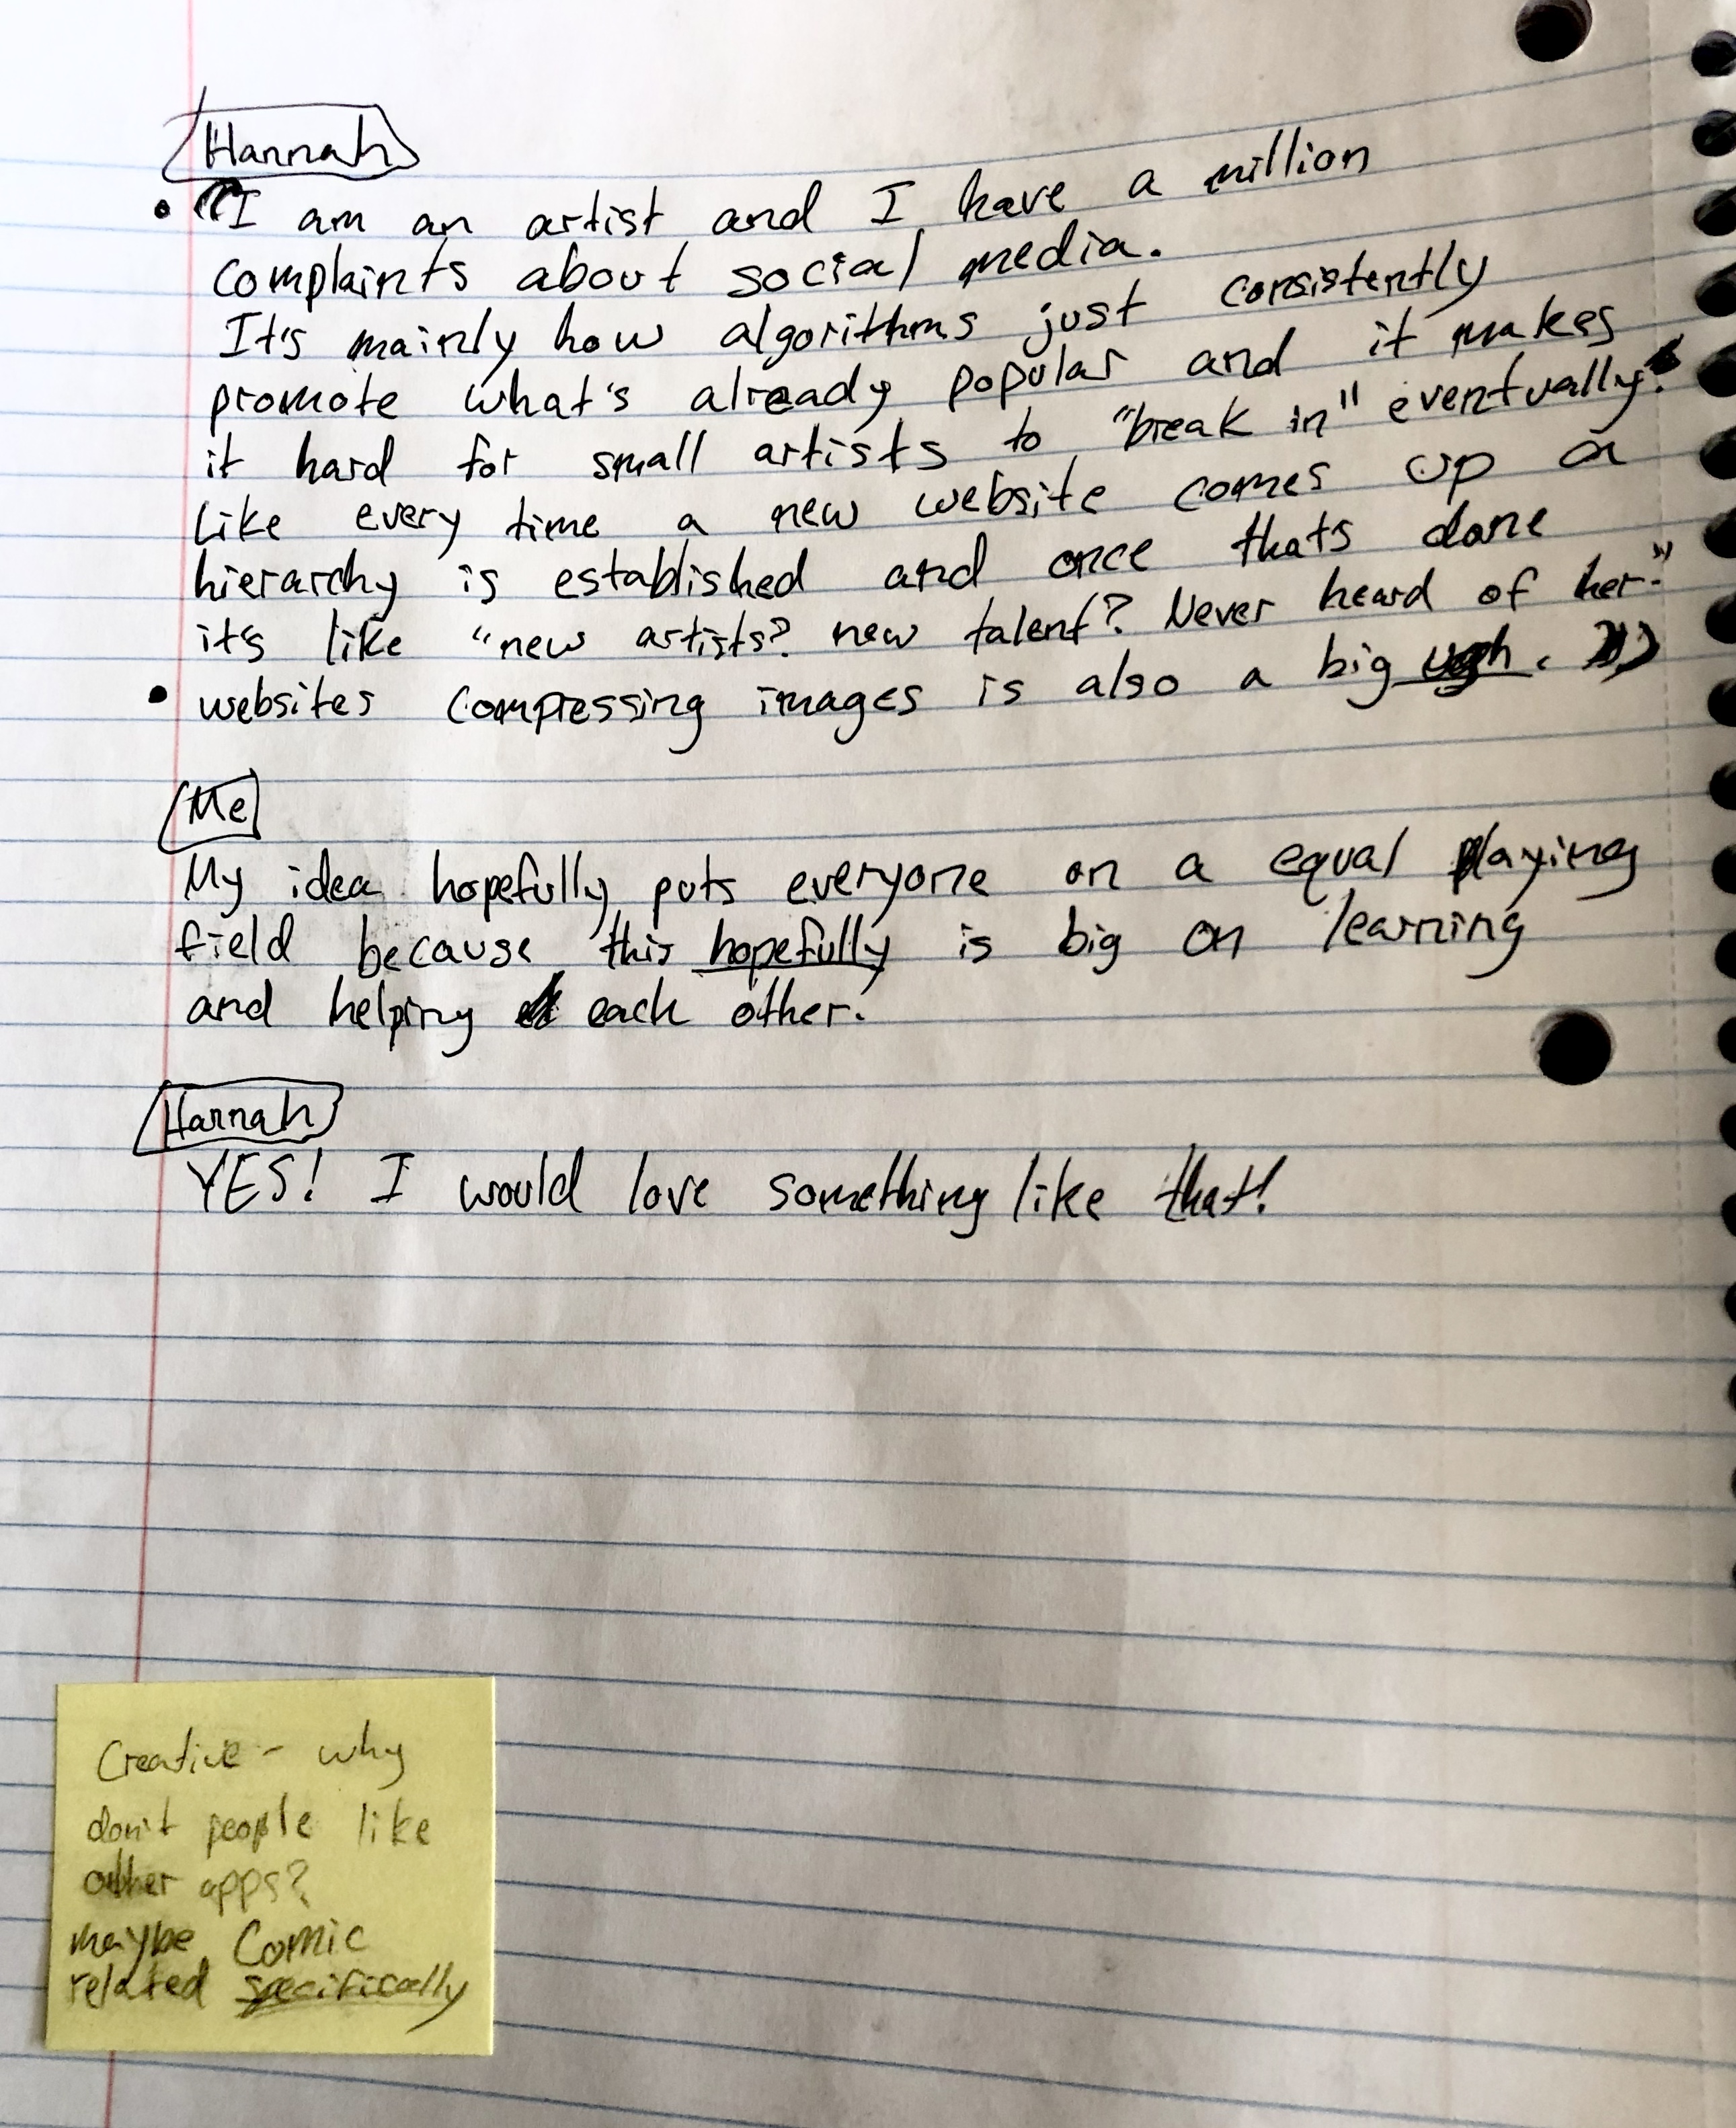 Hannah
• I am an artist and I have a million
complaints about social media.
It's mainly how algorithms just consistently
promote what's already popular and it makes
it hard for small artists to "break in" eventually.
Like every time a new website comes up a
hierarchy is established and once thats done
it's like "new artists? new talent? Never heard of her."
• websites compressing images is also a big ugh.
Me
My idea hopefully puts everyone on a equal playing
field because this hopefully is big on learning
and helping each other.
Hannah
YES! I would love something like that!
Creative - why
don't people like
other apps?
maybe Comic
related specifically